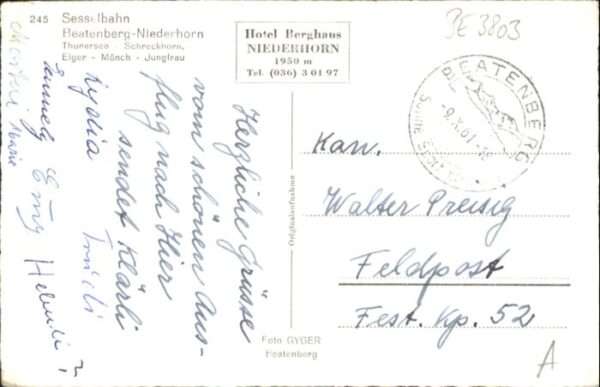 245 Sesselbahn
Beatenberg-Niederhorn
Thunersee Schreckhorn,
Eiger - Mönch - Jungfrau
Hotel Berghaus
NIEDERHORN
1950 m
Tel. (036) 3 01 97
BE 3803
BEATENBERG
Herzliche Grüsse
vom schönen Aus-
flug nach Hier
sendet Klärli
Lydia Trudi
Emmely Emy
Marie
Originalaufnahme
Kan.
Walter Preisig
Feldpost
Fest. Kp. 52
Foto GYGER
Beatenberg
A